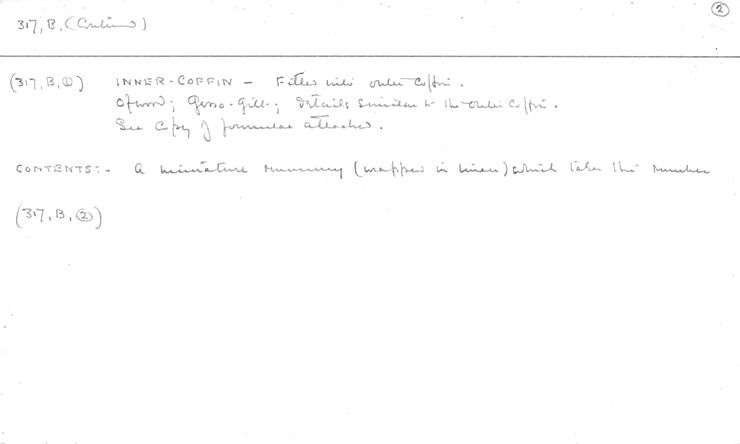 ②
317, B, (Continued)
(317, B, ①) INNER-COFFIN — Fitted into outer coffin.
Of wood; gesso-gilt; details similar to the outer coffin.
See copy of formulae attached.
CONTENTS:- A miniature mummy (wrapped in linen) which takes the number
(317, B, ②)